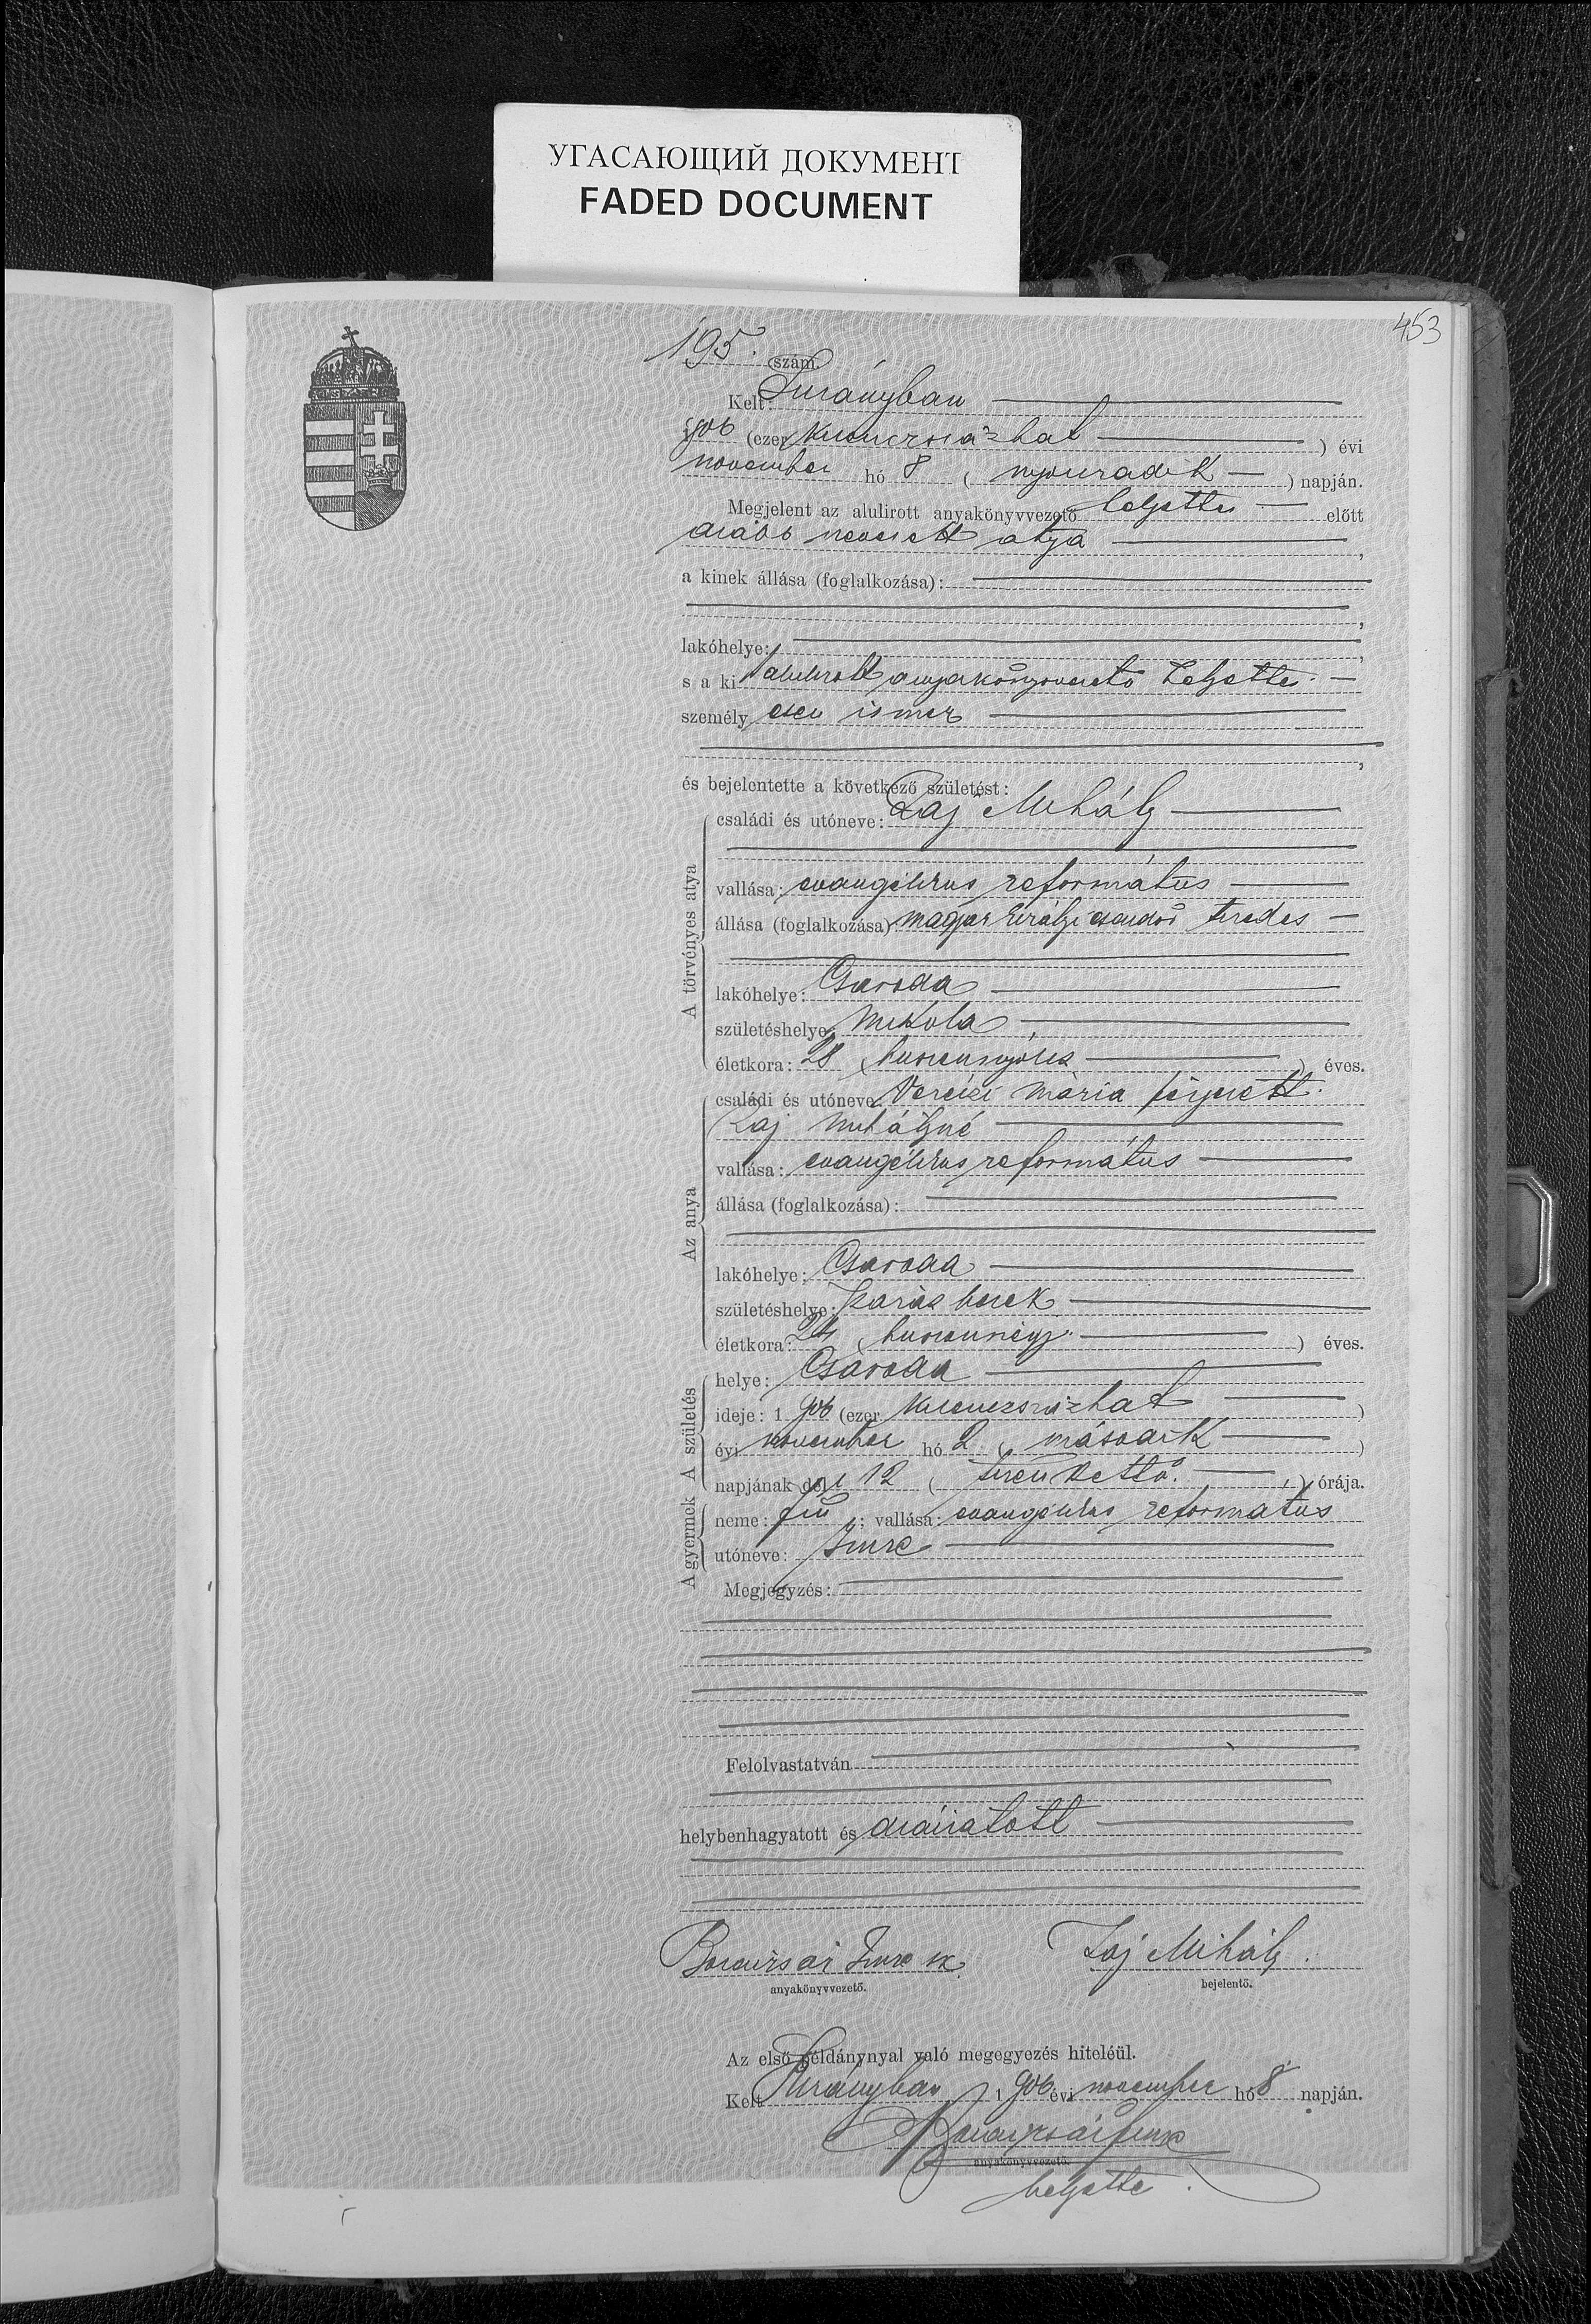 УГАСАЮЩИЙ ДОКУМЕНТ
FADED DOCUMENT
453
195. szám.
Kelt:
1906 (ezer kilenczszázhat) évi
november hó 8 (nyolczadik) napján.
Megjelent az alulirott anyakönyvvezető helyettes előtt
alább nevezett atya,
a kinek állása (foglalkozása):
lakóhelye:
s a kit alulirott anyakönyvvezető helyettes
személyesen ismer
és bejelentette a következő születést:
A törvényes atya
családi és utóneve: Laj Mihály
vallása: evangélikus református
állása (foglalkozása): magyar királyi csendőr
lakóhelye: Csaroda
születéshelye: Mikola
életkora: 28 (huszonnyolcz) éves.
Az anya
családi és utóneve: Mária férjezett
Laj Mihályné
vallása: evangélikus református
állása (foglalkozása):
lakóhelye: Csaroda
születéshelye:
életkora: 24 (huszonnégy) éves.
A születés
helye: Csaroda
ideje: 1906 (ezer kilenczszázhat)
évi november hó 2 (második)
napjának dél 12 (tizenkettő) órája.
A gyermek
neme: fiú; vallása: evangélikus református
utóneve: Imre
Megjegyzés:
Felolvastatván
helybenhagyatott és aláiratott
Imre sk. Laj Mihály.
anyakönyvvezető. bejelentő.
Az első példánynyal való megegyezés hiteléül.
Kelt 1906 évi november hó 8 napján.
Imre
anyakönyvvezető.
helyettes.